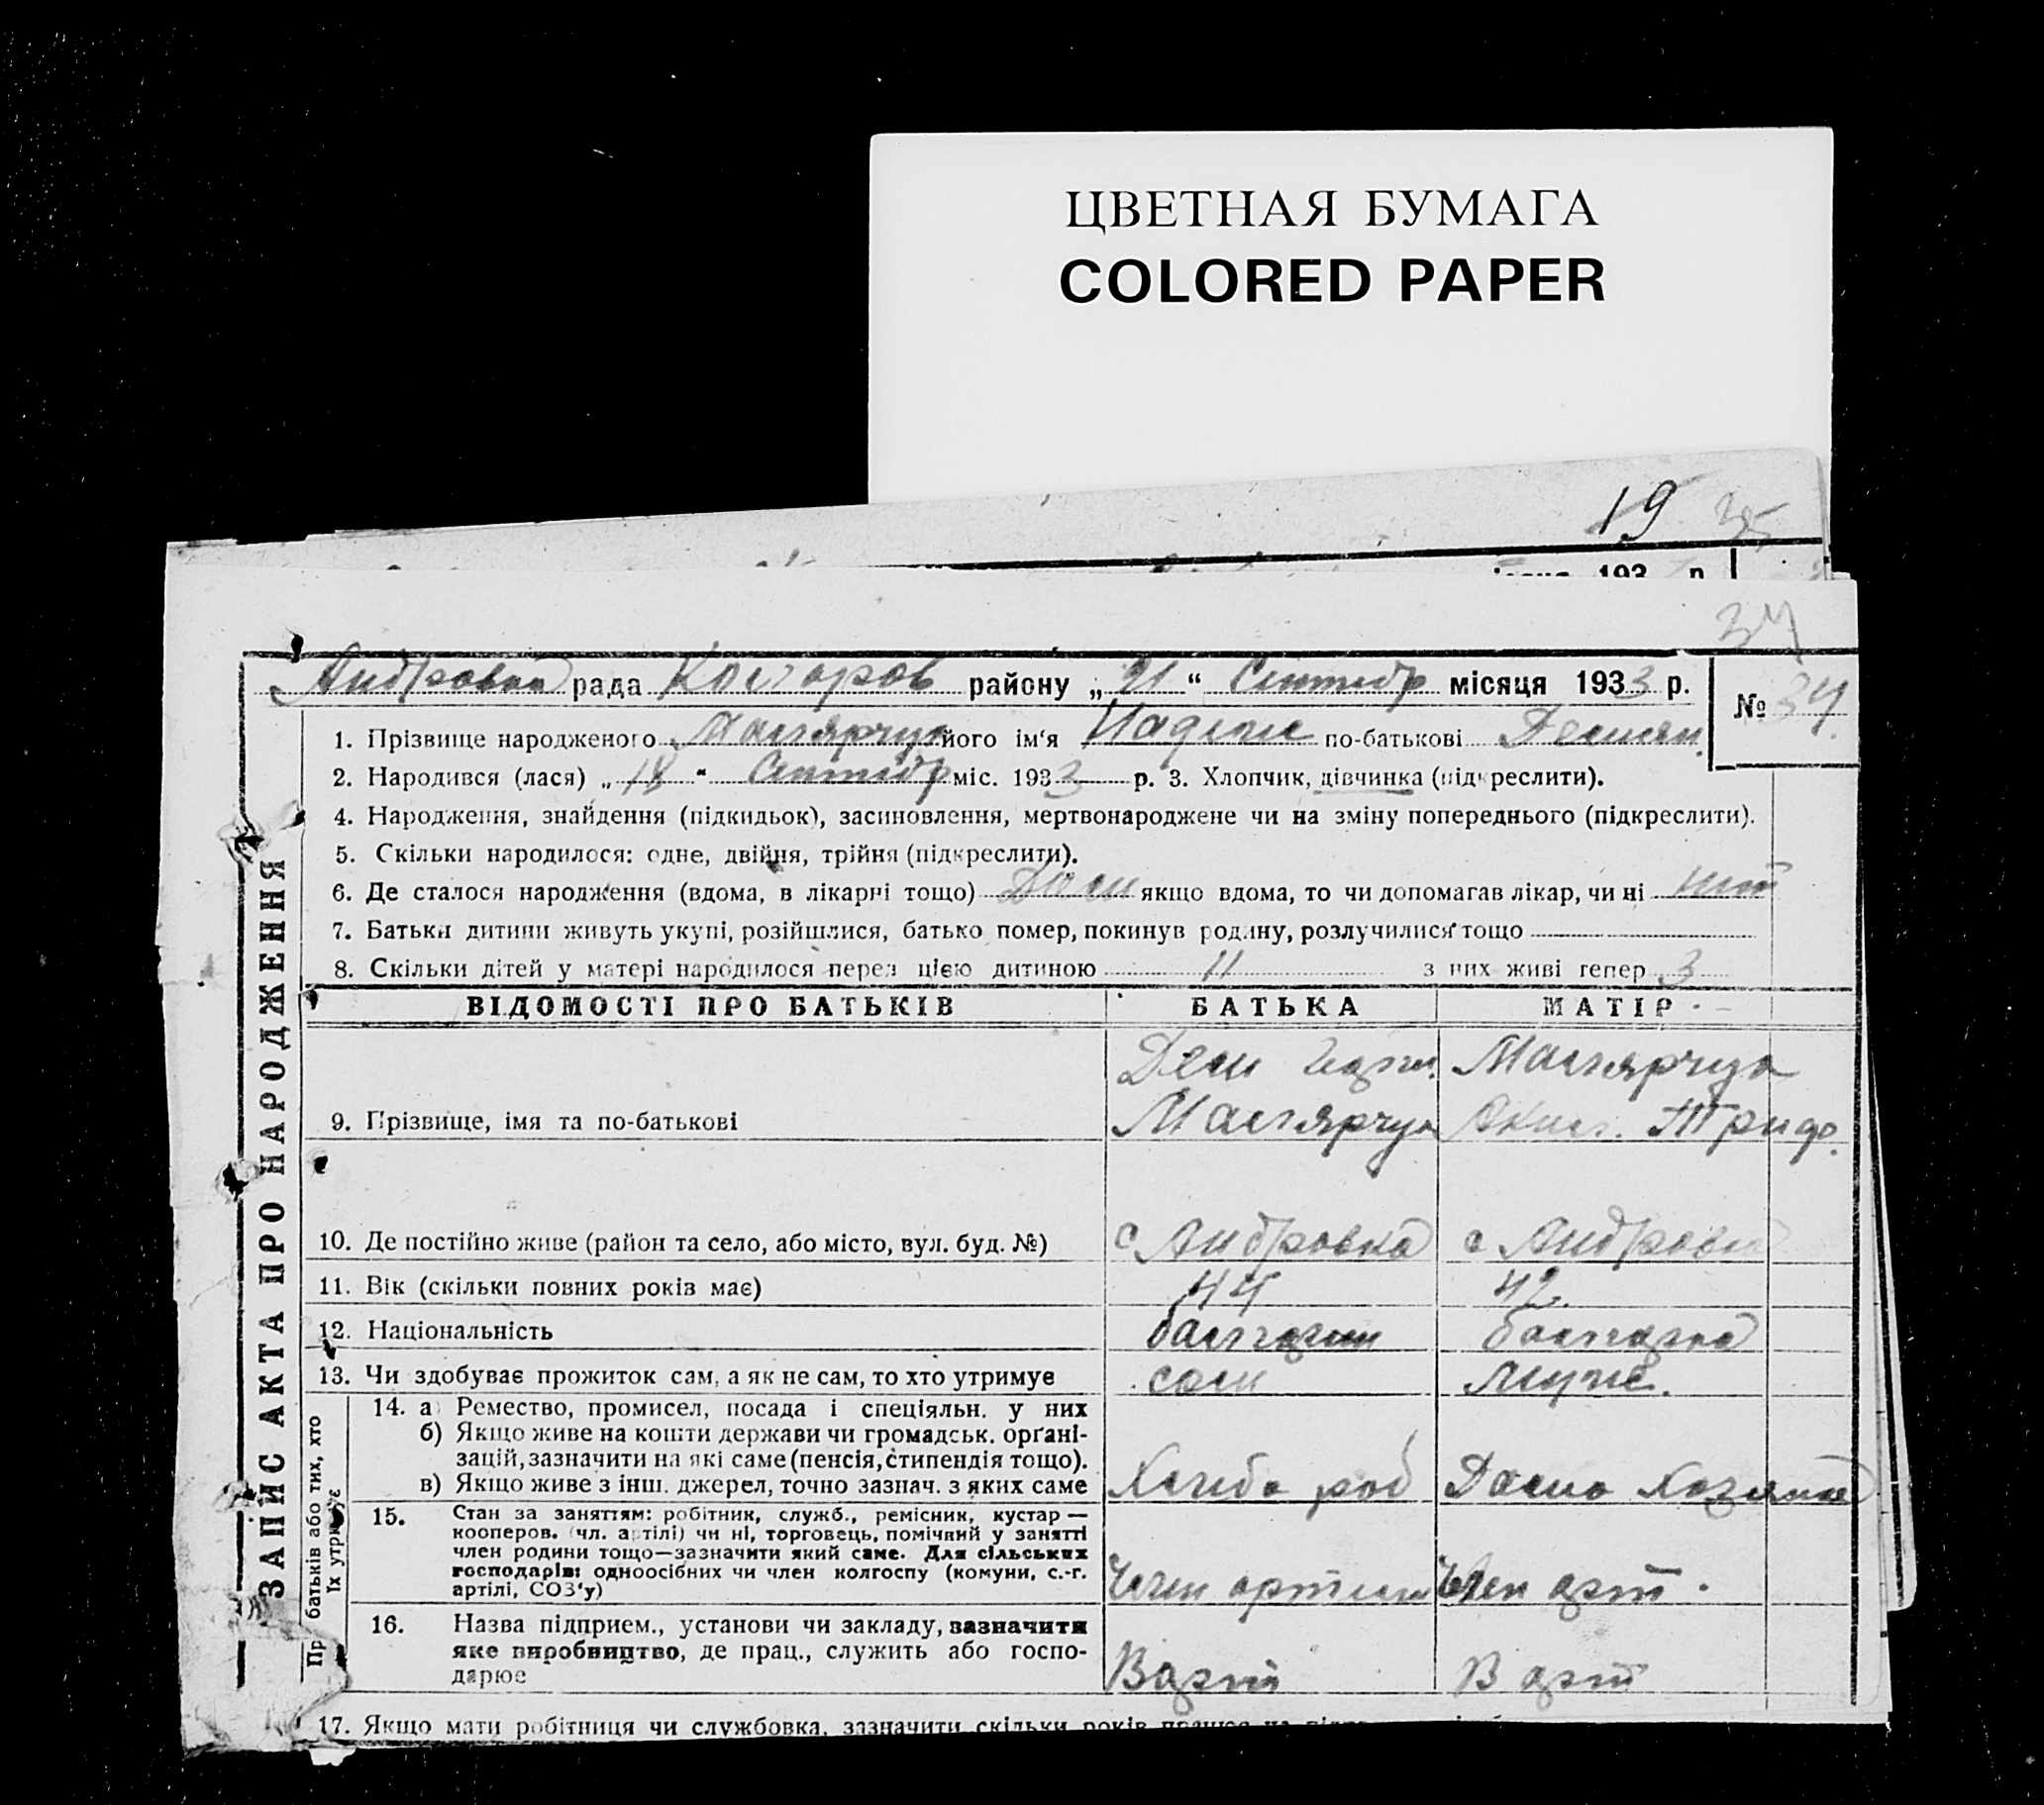 ЦВЕТНАЯ БУМАГА
COLORED PAPER
19 35
193 р.
34
Андровка рада Коларов району „ 21 “ Сентябр місяця 1933 р.
№ 34
1. Прізвище народженого його ім‘я Надеже по-батькові Демян.
2. Народився (лася) „ 18 “ Сентябр міс. 1933 р. 3. Хлопчик, дівчинка (підкреслити).
4. Народження, знайдення (підкидьок), засиновлення, мертвонароджене чи на зміну попереднього (підкреслити).
5. Скільки народилося: одне, двійня, трійня (підкреслити).
6. Де сталося народження (вдома, в лікарні тощо) Дом якщо вдома, то чи допомагав лікар, чи ні нет
7. Батьки дитини живуть укупі, розійшлися, батько помер, покинув родину, розлучилися тощо
8. Скільки дітей у матері народилося перед цією дитиною 11 з них живі тепер 3
ЗАПИС АКТА ПРО НАРОДЖЕННЯ
ВІДОМОСТІ ПРО БАТЬКІВ БАТЬКА МАТІР
9. Прізвище, імя та по-батькові
10. Де постійно живе (район та село, або місто, вул. буд. №) с Андровка с Андровка
11. Вік (скільки повних років має) 44 42.
12. Національність болгарин болгарка
13. Чи здобуває прожиток сам, а як не сам, то хто утримує сам муже.
Пр батьків або тих, хто
їх утримує
14. а) Ремество, промисел, посада і спеціяльн. у них
б) Якщо живе на кошти держави чи громадськ. орґані-
зацій, зазначити на які саме (пенсія, стипендія тощо).
в) Якщо живе з інш. джерел, точно зазнач. з яких саме Хлебо роб Домо Хозяйка
15. Стан за заняттям: робітник, служб., ремісник, кустар —
кооперов. (чл. артілі) чи ні, торговець, помічний у занятті
член родини тощо—зазначити який саме. Для сільських
господарів: одноосібних чи член колгоспу (комуни, с.-г.
артілі, СОЗ‘у) Член артели Член арт.
16. Назва підприєм., установи чи закладу, зазначити
яке виробництво, де прац., служить або госпо-
дарює В арт В арт
17. Якщо мати робітниця чи службовка, зазначити скільки років працює на